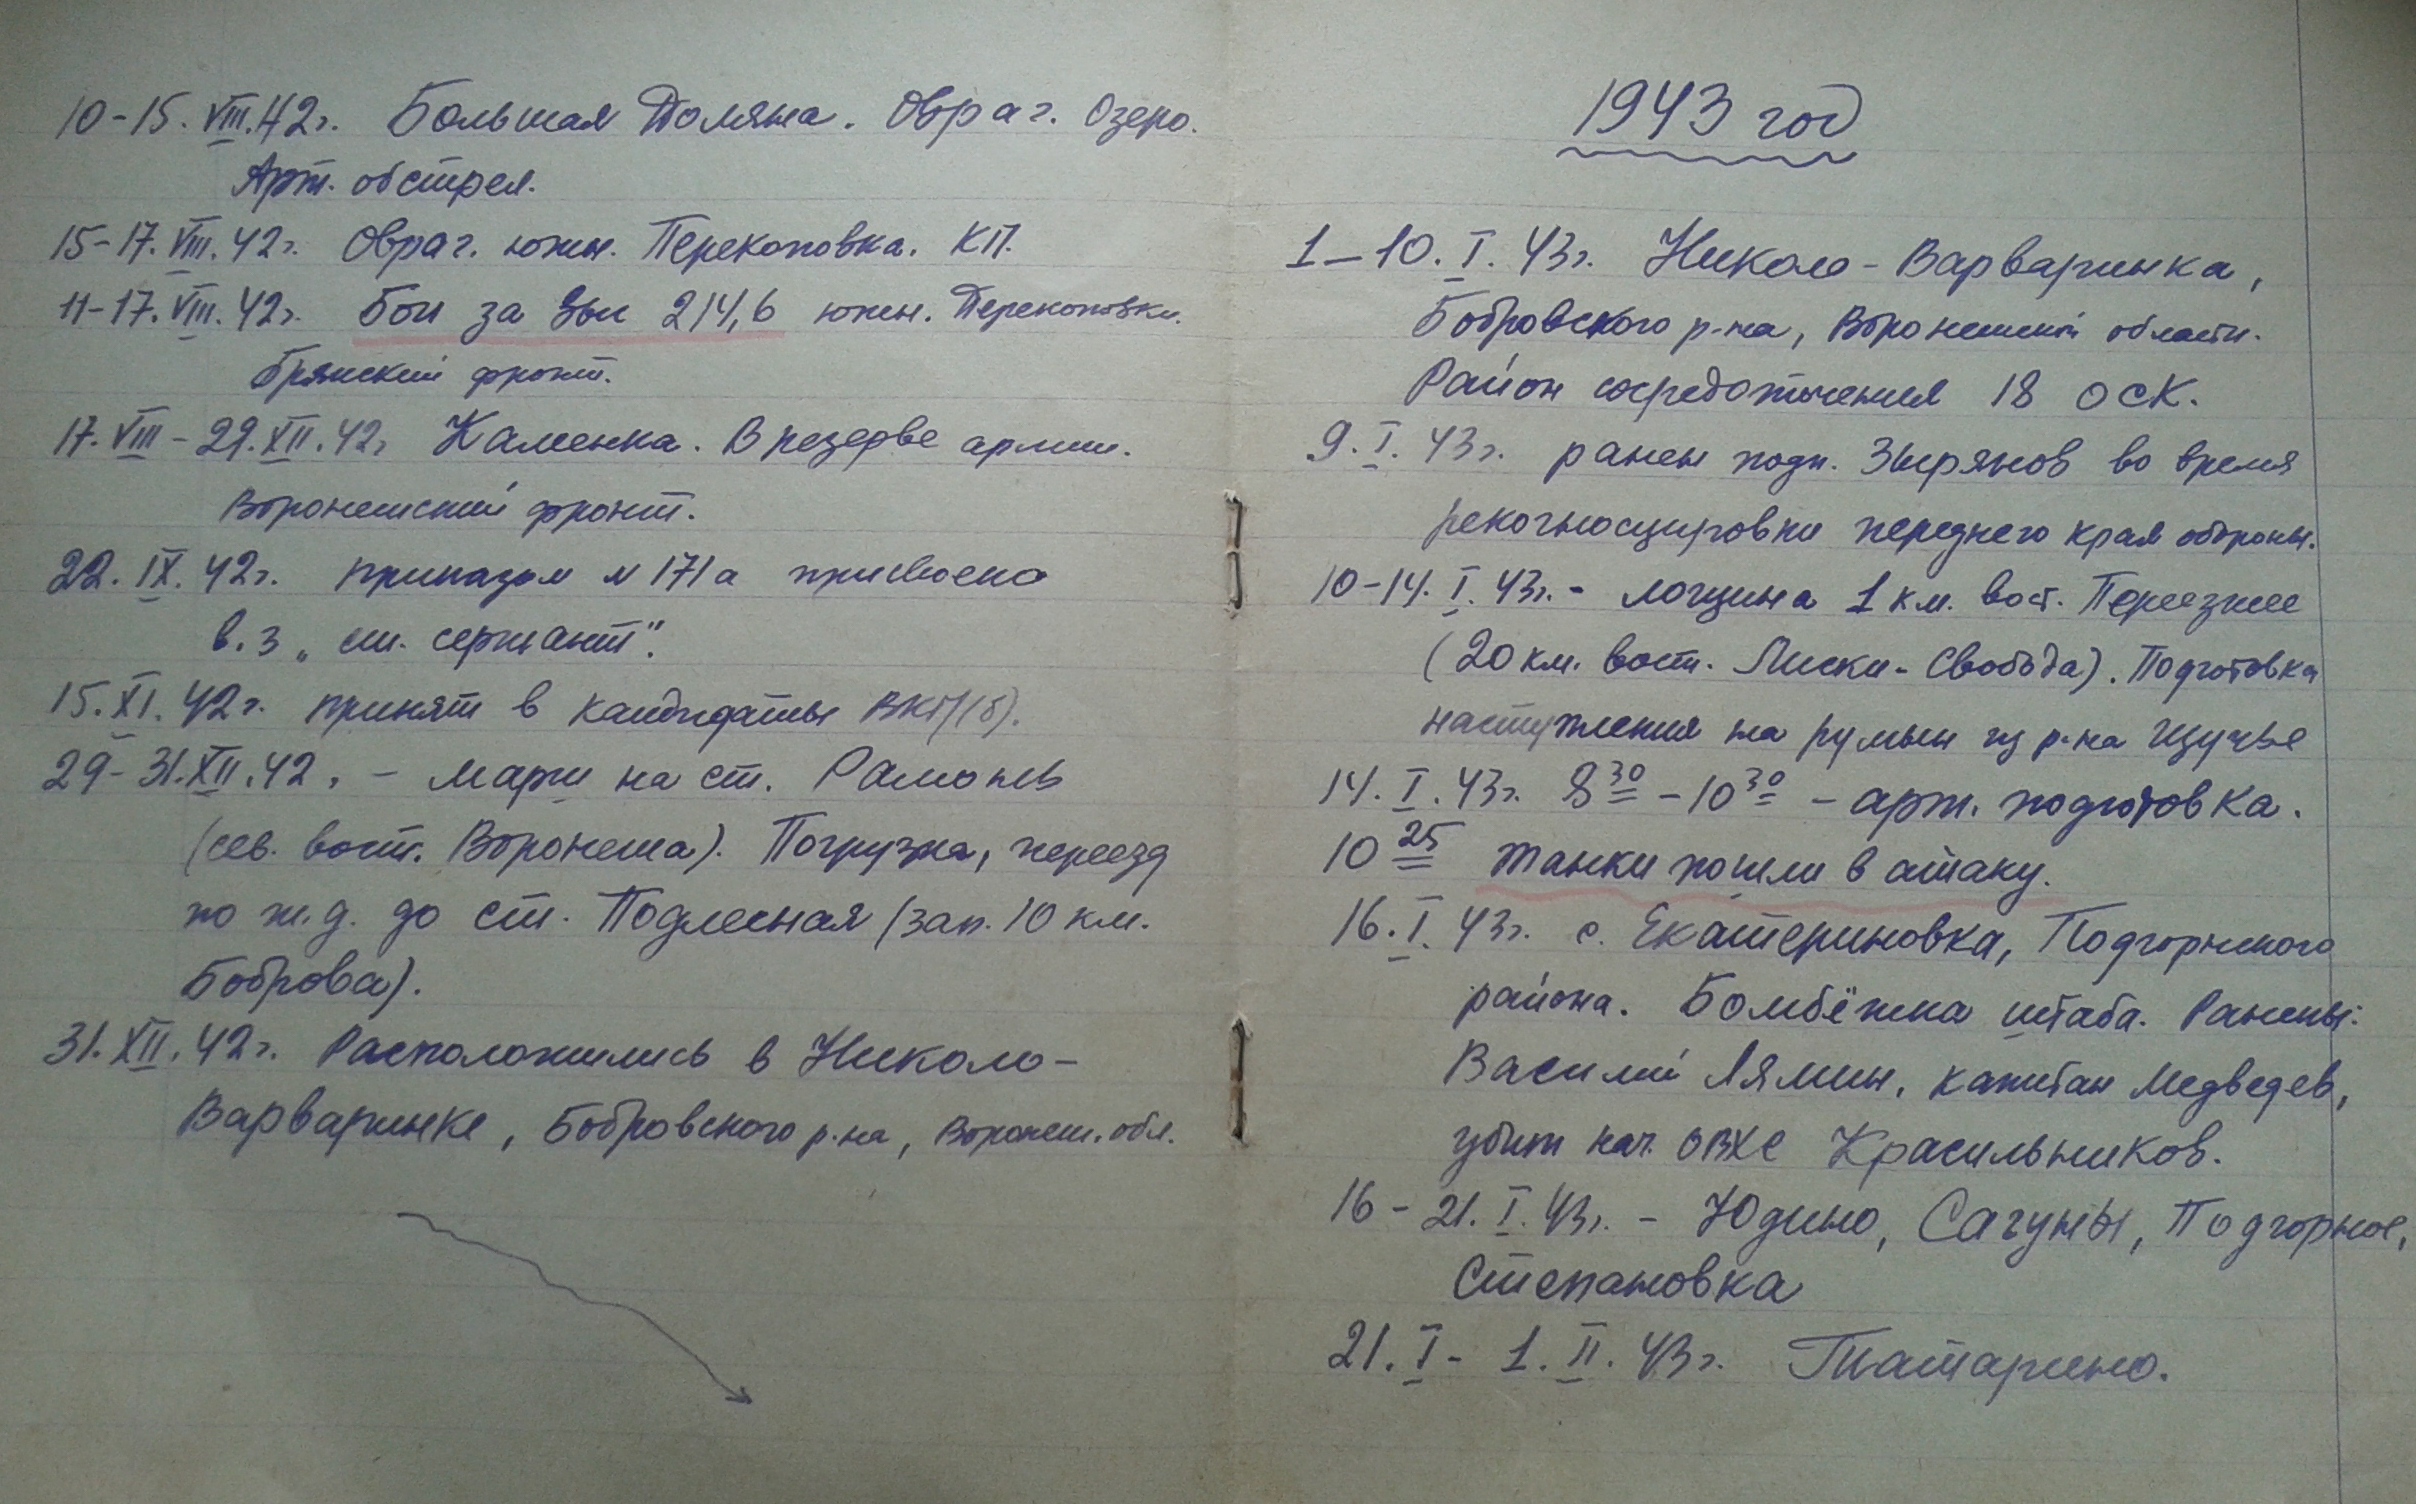 10-15.VIII.42г. Большая Поляна. Овраг. Озеро.
Арт. обстрел.
15-17.VIII.42г. Овраг. южн. Перекоповка. КП.
11-17.VIII.42г. Бои за выс 214,6 южн. Перекоповки.
Брянский фронт.
17.VIII-29.XII.42г Каменка. В резерве армии.
Воронежский фронт.
22.IX.42г. приказом № 171а присвоено
в.з „ст. сержант".
15.XI.42г. принят в кандидаты ВКП(б).
29-31.XII.42г. - Марш на ст. Рамонь
(сев. вост. Воронежа). Погрузка, переезд
по ж.д. до ст. Подлесная (зап. 10 км.
Боброва).
31.XII.42г. Расположились в Николо-
Варваринке, Бобровского р-на, Воронеж. обл.
1943 год
1-10.I.43г. Николо-Варваринка,
Бобровского р-на, Воронежской области.
Район сосредоточения 18 ОСК.
9.I.43г. ранен подп. Зырянов во время
рекогносцировки переднего края обороны.
10-14.I.43г.- лощина 1 км. вост. Переезжее
(20 км. вост. Лиски-Свобода). Подготовка
наступления на румын из р-на Щучье
14.I.43г. 8 30 - 10 30 - арт. подготовка.
10 25 танки пошли в атаку.
16.I.43г. с. Екатериновка, Подгорнского
района. Бомбёжка штаба. Ранены:
Василий Лямин, капитан Медведев,
убит нач. ОВХС Красильников.
16-21.I.43г. - Юдино, Сагуны, Подгорное,
Степановка
21.I-1.II.43г. Татарино.